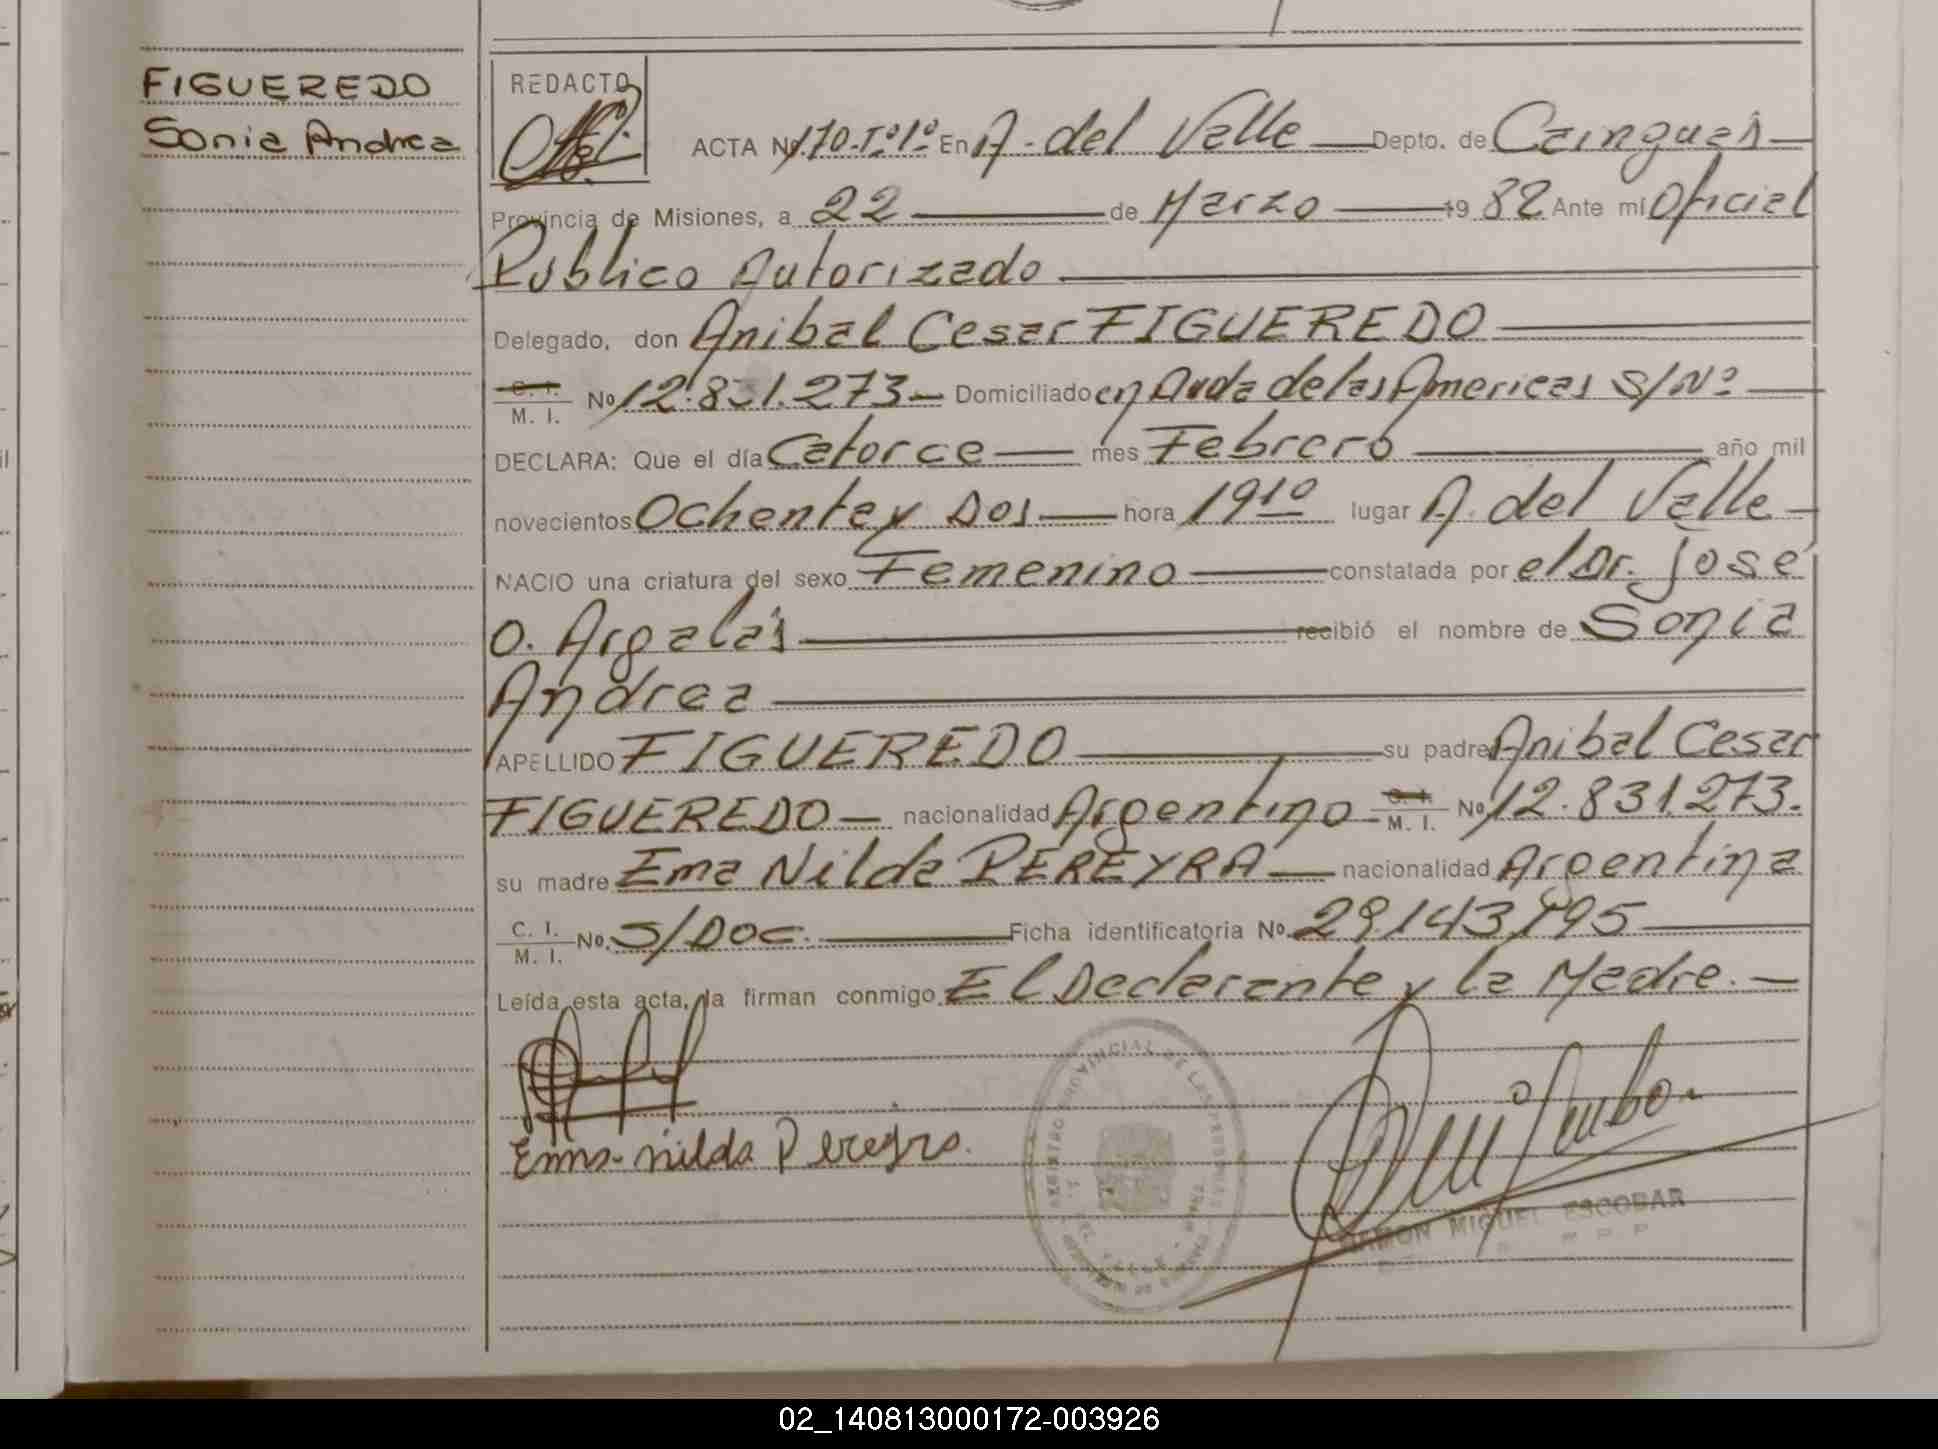 FIGUEREDO
Sonia Andrea
REDACTO
ACTA Nº 170-Tº1º En A. del Valle Depto. de Cainguás
Provincia de Misiones, a 22 de Marzo 19 82 Ante mí Oficial
Publico Autorizado
Delegado, don Anibal Cesar FIGUEREDO
C. I. / M. I. Nº 12.831.273 Domiciliado en Avda de las Americas S/Nº
DECLARA: Que el día Catorce mes Febrero año mil
novecientos Ochenta y Dos hora 19¹⁰ lugar A. del Valle
NACIO una criatura del sexo Femenino constatada por el Dr. José
O. Argalás recibió el nombre de Sonia
Andrea
APELLIDO FIGUEREDO su padre Anibal Cesar
FIGUEREDO nacionalidad Argentino C. I. / M. I. Nº 12.831.273.
su madre Ema Nilda PEREYRA nacionalidad Argentina
C. I. / M. I. Nº. S/Doc. Ficha identificatoria Nº 29.143.195
Leída esta acta, la firman conmigo El Declarante y la Madre.
Ema nilda Pereyra.
REGISTRO PROVINCIAL DE LAS PERSONAS
RAMON MIGUEL ESCOBAR
02_140813000172-003926